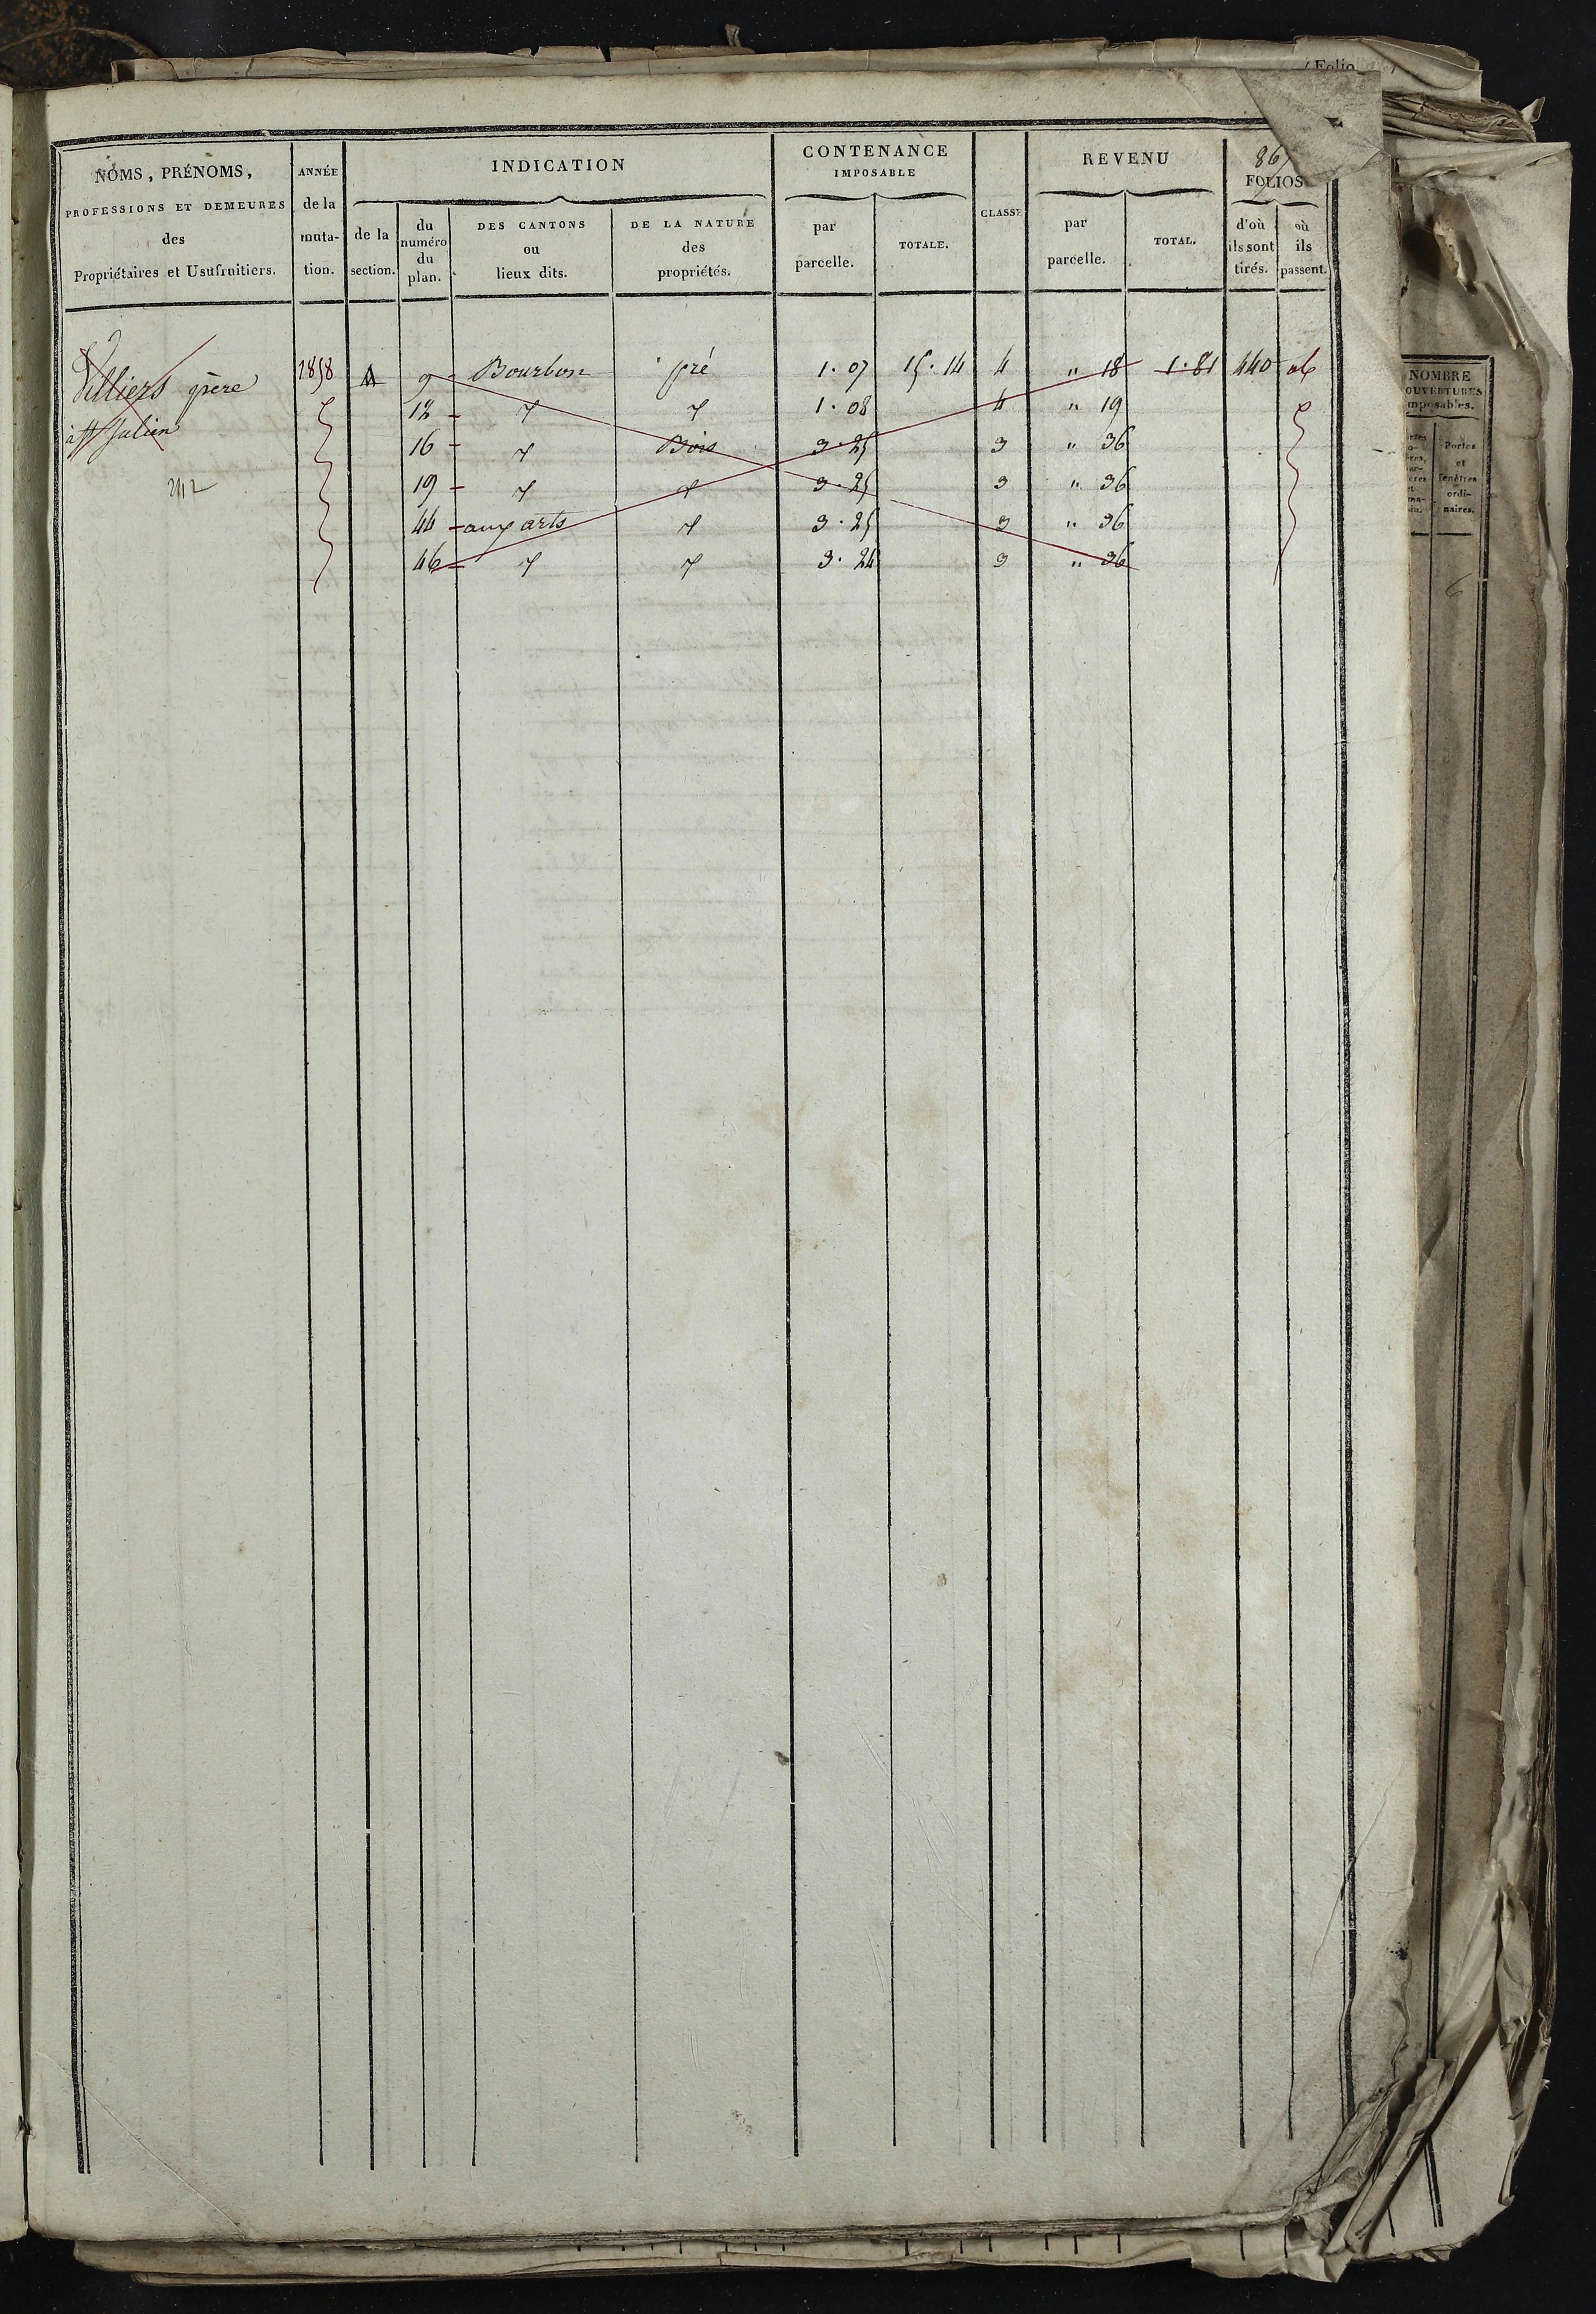 Folio
86
NOMS, PRÉNOMS,
PROFESSIONS ET DEMEURES
des
Propriétaires et Usufruitiers.
ANNÉE
de la
muta-
tion.
INDICATION
de la
section.
du
numéro
du
plan.
DES CANTONS
ou
lieux dits.
DE LA NATURE
des
propriétés.
CONTENANCE
IMPOSABLE
par
parcelle.
TOTALE.
CLASSE
REVENU
par
parcelle.
TOTAL.
FOLIOS
d'où
ils sont
tirés.
où
ils
passent.
Villiers père 1858 A 9 Bourbon pré 1.07 15.14 4 " 18 1.81 440
12 1.08 4 " 19
à St Julien
16 Bois 3.25 3 " 36
19 3.25 3 " 36
44 aux arts 3.25 3 " 36
46 3.24 3 " 36
NOMBRE
OUVERTURES
imposables.
Portes
et
fenêtres
ordi-
naires.
6